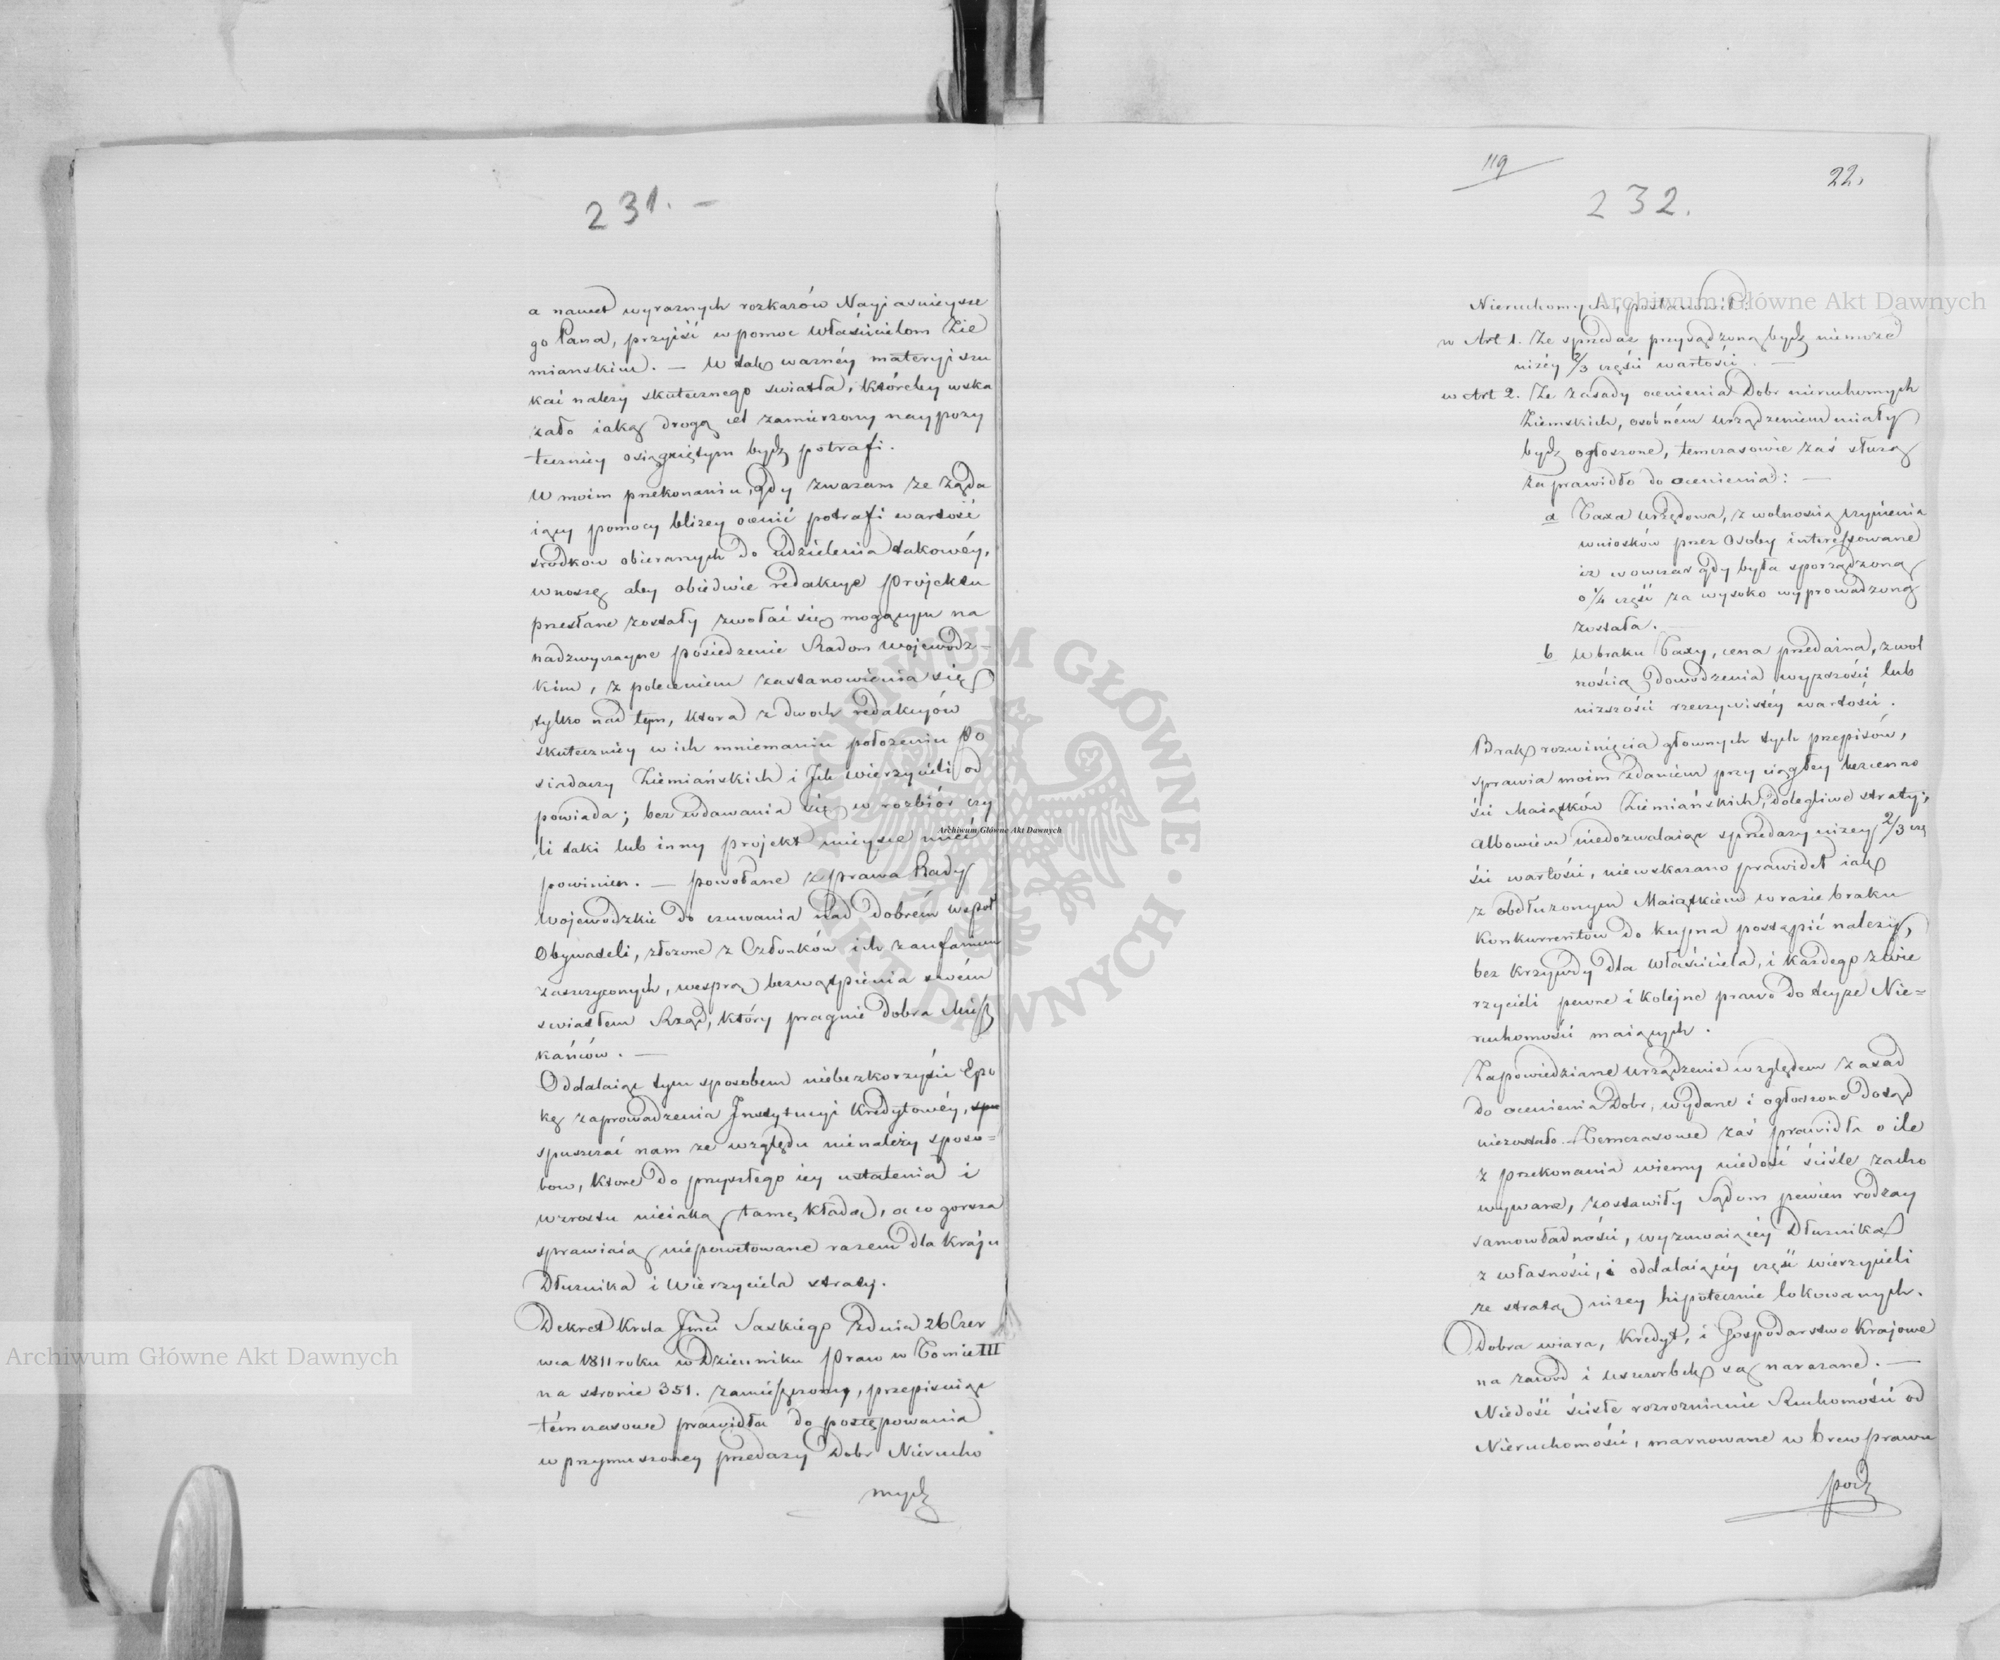 231. –
a nawet wyraznych rozkazów Nayjasnieysze
go Pana, przyiść w pomoc Właścicielom Zie
mianskim. — W tak ważnéy materyi szu
kać należy skutecznego swiatła, któreby wska
zało iaką drogą cel zamierzony naypozy
teczniey osiągniętym bydź potrafi.
W moim przekonaniu, gdy zwazam ze żąda
iący pomocy bliżey ocenić potrafi wartość
srodkow obieranych do udzielenia takowéy,
wnoszę aby obiedwie redakcye projektu
przesłane zostały zwołać się mogącym na
nadzwyczayne posiedzenie Radom Wojewodz=
kim, z poleceniem zastanowienia się
tylko nad tym, ktora z dwoch redakcyów
skuteczniey w ich mniemaniu położeniu Po
siadaczy Ziemiańskich i Jch wierzycieli od
powiada; bez wdawania się w rozbiór czy
li taki lub inny projekt mieysce mieć
powinien. — powołane z prawa Rady
Wojewodzkie do czuwania nad dobrém współ
Obywateli, złozone z Członków ich zaufaniem
zaszczyconych, wesprą bezwątpienia swém
swiatłem Rząd, który pragnie dobra Miesz
kańców. —
Oddalaiąc tym sposobem niebezkorzyści Epo
kę zaprowadzenia Jnstytucyi Kredytowéy, spu
spuszczać nam ze względu nienależy sposo=
bow, ktore do przyszłego iey ustalenia i
wzrostu nieiaką tamę kładą, a co gorsza
sprawiaią niepowetowane razem dla kraju
Dłuznika i Wierzyciela straty.
Dekret Krola Jmci Saskiego z dnia 26 Czer
wca 1811 roku w Dzienniku Praw w Tomie III
na stronie 351. zamieszczony, przepisuiąc
témczasowe prawidła do postępowania
w przymuszoney przedazy Dobr Nierucho
mych
119
22.
232.
Nieruchomych, postanowił:
w Art 1. Ze sprzedaz przysądzoną bydź niemoże
niżéy 2/3 części wartości. —
w Art 2. Ze zasady ocenienia Dobr nieruchomych
Ziemskich, osobném urządzeniem miały
bydź ogłoszone, temczasowie zaś służą
za prawidło do ocenienia: —
a Taxa urzędowa, z wolnością czynienia
wniosków przez Osoby interessowane
iz wowczas gdy była sporządzoną
o ¼ część za wysoko wyprowadzoną
została. —
b W braku Taxy, cena przedażna, z wol
nością dowodzenia wyższości lub
niższości rzeczywistéy wartości.
Brak rozwinięcia głownych tych przepisów,
sprawia moim zdaniem przy ciągłey bezcenno
ści Maiątków Ziemiańskich, dolegliwe straty;
Albowiem niedozwalaiąc sprzedazy nizey 2/3 czę
ści wartości, niewskazano prawideł iak
z obdłużonym Maiątkiem w razie braku
Konkurrentow do kupna postąpić należy,
bez krzywdy dla Właściciela, i każdego z wie
rzycieli pewne i kolejne prawo do teyze Nie=
ruchomości maiących.
Zapowiedziane urządzenie względem zasad
do ocenienia Dobr, wydane i ogłoszone dotąd
niezostało. Temczasowe zaś prawidła o ile
z przekonania wiemy niedość ściśle zacho
wywane, zostawiły Sądom pewien rodzay
samowładności, wyzuwaiącéy Dłuznika
z własności, i oddalaiącéy część wierzycieli
ze stratą nizey hipotecznie lokowanych.
Dobra wiara, Kredyt, i Gospodarstwo Krajowe
na zawód i uszczerbek są narazane. —
Niedość ścisłe rozroznienie Ruchomości od
Nieruchomości, marnowane w brew prawu
pod
Archiwum Główne Akt Dawnych
Archiwum Główne Akt Dawnych
Archiwum Główne Akt Dawnych
ARCHIWUM GŁÓWNE AKT DAWNYCH